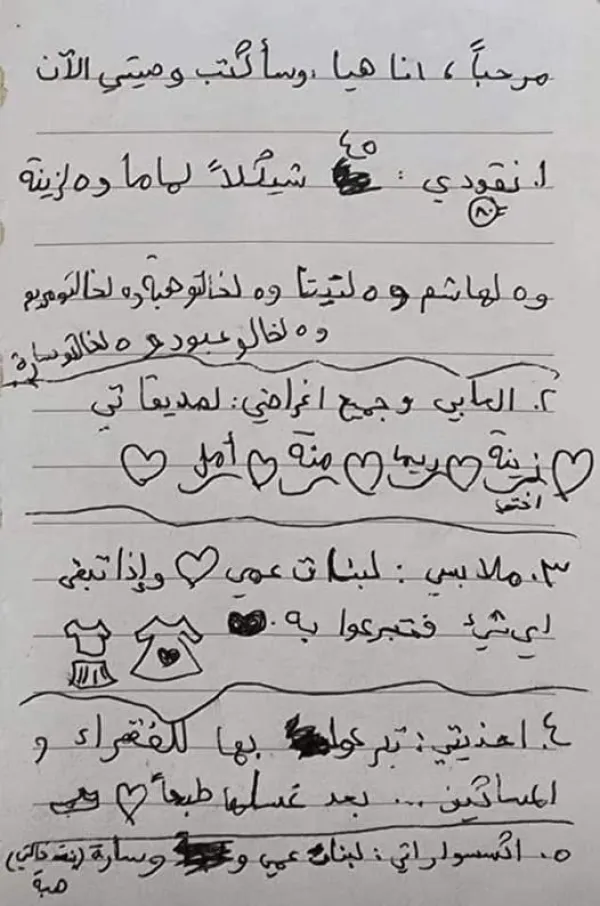 مرحباً ، انا هيا ، وسأكتب وصيتي الآن
٤٥
١. نقودي : شيكلاً لماما و٥ لزينة
٨٠
و٥ لهاشم و٥ لتيتا و٥ لخالتو هبة و٥ لخالتو مريم
و٥ لخالو عبود و٥ لخالتو سارة
٢. العابي وجميع اغراضي : لصديقاتي
زينة ريما منة أمل
اختي
٣. ملابسي : لبنات عمي وإذا تبقى
اي شيء فتبرعوا به.
٤. احذيتي : تبرعوا بها للفقراء و
المساكين ... بعد غسلها طبعاً
٥. اكسسواراتي : لبنات عمي و وسارة (بنت خالتي)
هبة